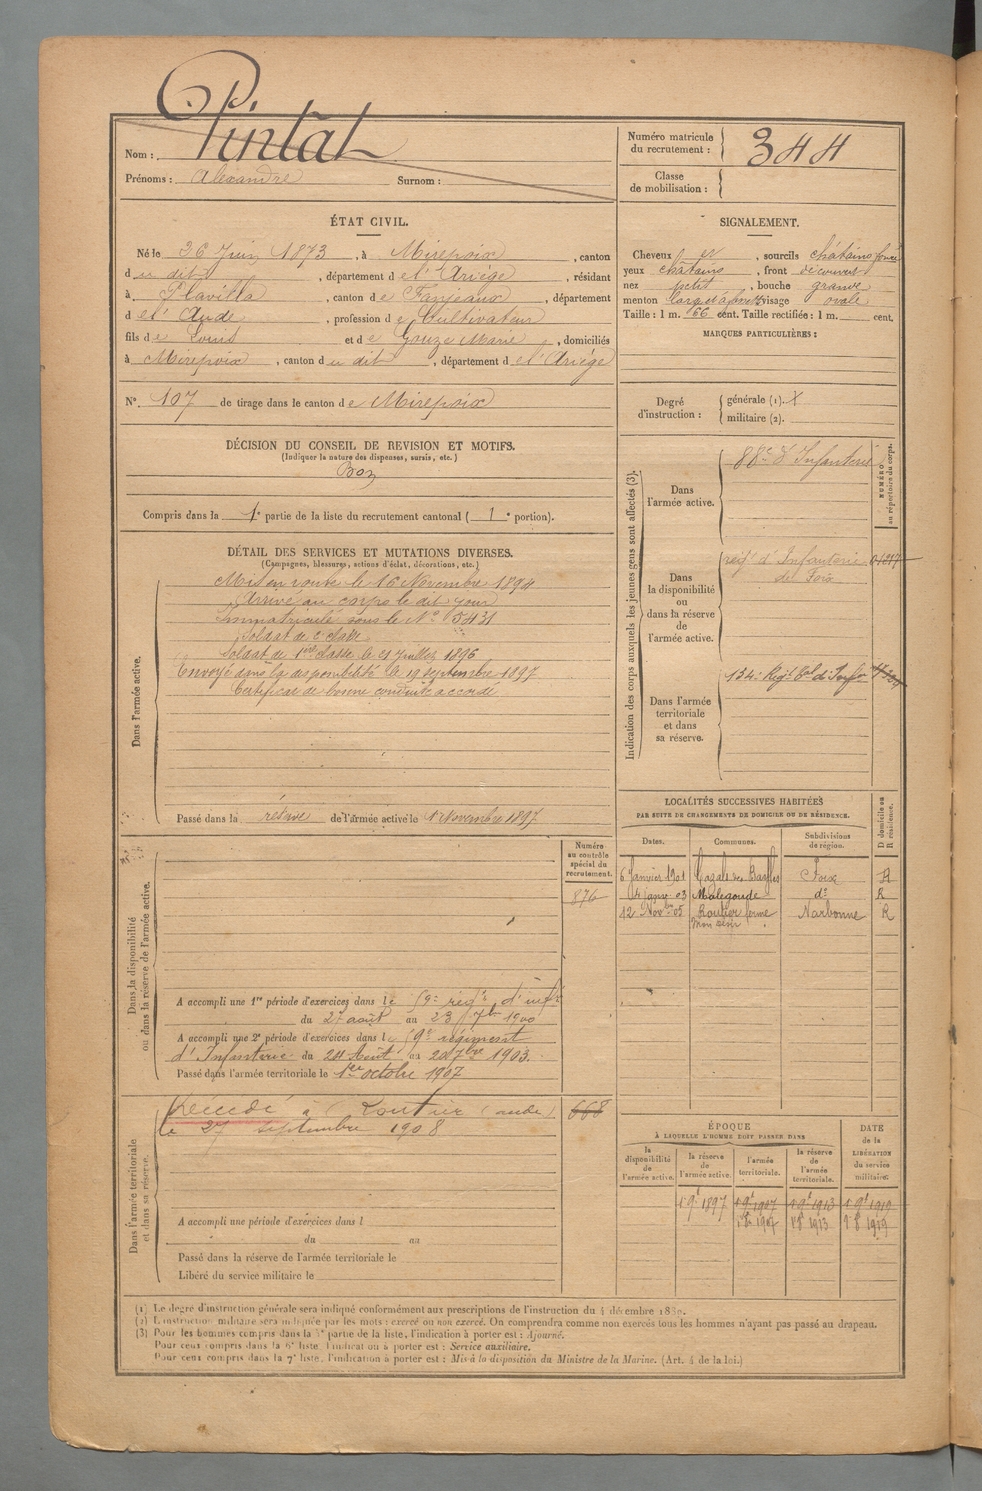 Nom : Pintat
Prénoms : Alexandre Surnom :
Numéro matricule du recrutement : 344
Classe de mobilisation :
ÉTAT CIVIL.
Né le 26 Juin 1873, à Mirepoix, canton
du dit, département de l'Ariège, résidant
à Plavilla, canton de Fanjeaux, département
de l'Aude, profession de Cultivateur
fils de Louis et de Gouze Marie, domiciliés
à Mirepoix, canton du dit, département de l'Ariège
N° 107 de tirage dans le canton de Mirepoix
DÉCISION DU CONSEIL DE REVISION ET MOTIFS.
(Indiquer la nature des dispenses, sursis, etc.)
Bon
Compris dans la 1e partie de la liste du recrutement cantonal ( 1e portion).
SIGNALEMENT.
Cheveux et, sourcils châtains foncé
yeux châtains, front découvert
nez petit, bouche grande
menton large, visage ovale
Taille : 1 m. 66 cent. Taille rectifiée : 1 m. cent.
MARQUES PARTICULIÈRES :
Degré d'instruction : générale (1).
militaire (2).
DÉTAIL DES SERVICES ET MUTATIONS DIVERSES.
(Campagnes, blessures, actions d'éclat, décorations, etc.)
Dans l'armée active.
Mis en route le 16 Novembre 1894
Arrivé au corps le dit jour
Immatriculé sous le N° 5431
Soldat de 2e classe
Soldat de 1ère classe le 21 Juillet 1896
Envoyé dans la disponibilité le 19 Septembre 1897
Certificat de bonne conduite accordé
Passé dans la réserve de l'armée active le 1 Novembre 1897
Indication des corps auxquels les jeunes gens sont affectés (3).
NUMÉRO au répertoire du corps.
Dans l'armée active.
88e d'Infanterie
Dans la disponibilité ou dans la réserve de l'armée active.
régt d'Infanterie de Foix
Dans l'armée territoriale et dans sa réserve.
134e Régt Tal d'Infie
LOCALITÉS SUCCESSIVES HABITÉES
PAR SUITE DE CHANGEMENTS DE DOMICILE OU DE RÉSIDENCE.
Dates. Communes. Subdivisions de région. D domicile ou R résidence.
6 Janvier 1901 Cazals des Bayles Foix R
4 janv 03 Malegoude d° R
12 Novbre 05 Routier ferme Narbonne R
Dans la disponibilité ou dans la réserve de l'armée active.
Numéro au contrôle spécial du recrutement.
876
A accompli une 1re période d'exercices dans le 59e régt d'infie
du 27 août au 23 7bre 1900
A accompli une 2e période d'exercices dans le 59e régiment
d'Infanterie du 24 Août au 20 7bre 1903.
Passé dans l'armée territoriale le 1er octobre 1907
Dans l'armée territoriale et dans sa réserve.
Décédé à Routier (aude)
le 27 septembre 1908
668
A accompli une période d'exercices dans l
du au
Passé dans la réserve de l'armée territoriale le
Libéré du service militaire le
ÉPOQUE
À LAQUELLE L'HOMME DOIT PASSER DANS
DATE de la LIBÉRATION du service militaire.
la disponibilité de l'armée active. la réserve de l'armée active. l'armée territoriale. la réserve de l'armée territoriale.
1 9t 1897 1 9t 1907 1 9t 1913 1 9t 1919
1 8t 1907 1 8t 1913 1 8t 1919
(1) Le degré d'instruction générale sera indiqué conformément aux prescriptions de l'instruction du 4 décembre 1889.
(2) L'instruction militaire sera indiquée par les mots : exercé ou non exercé. On comprendra comme non exercés tous les hommes n'ayant pas passé au drapeau.
(3) Pour les hommes compris dans la 5e partie de la liste, l'indication à porter est : Ajourné.
Pour ceux compris dans la 6e liste, l'indication à porter est : Service auxiliaire.
Pour ceux compris dans la 7e liste, l'indication à porter est : Mis à la disposition du Ministre de la Marine. (Art. 4 de la loi.)